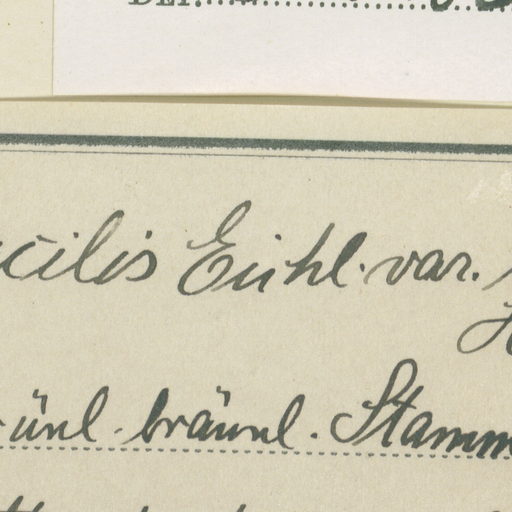 DET.
cilis Eichl. var.
ünl. bräunl. Stamm